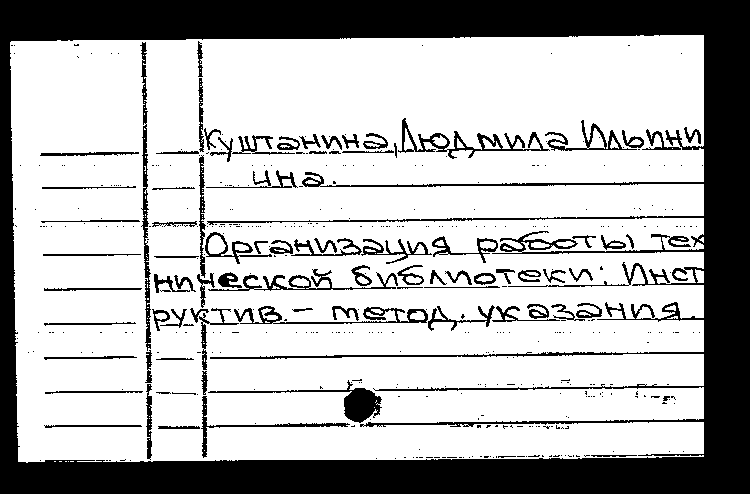 Куштанина, Людмила Ильини
чна.
Организация работы тех
нической библиотеки: Инст
руктив.- метод. указания.